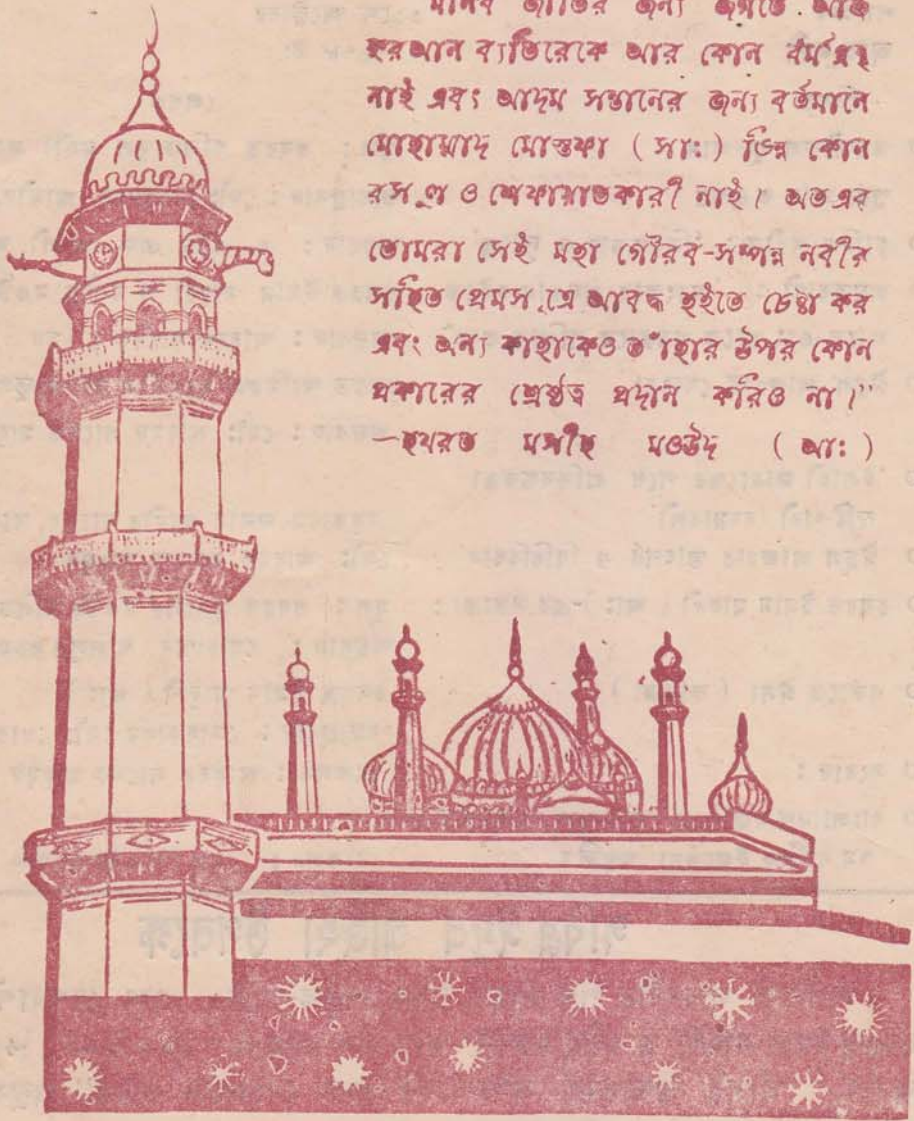 মানব জাতির জন্য জগতে আজ
কুরআন ব্যতিরেকে আর কোন ধর্মগ্রন্থ
নাই এবং আদম সন্তানের জন্য বর্তমানে
মোহাম্মাদ মোস্তফা ( সাঃ ) ভিন্ন কোন
রসূল ও শেফায়াতকারী নাই। অতএব
তোমরা সেই মহা গৌরব-সম্পন্ন নবীর
সহিত প্রেমসূত্রে আবদ্ধ হইতে চেষ্টা কর
এবং অন্য কাহাকেও তাহার উপর কোন
প্রকারের শ্রেষ্ঠত্ব প্রদান করিও না।”
—হযরত মসীহ মওউদ ( আঃ )